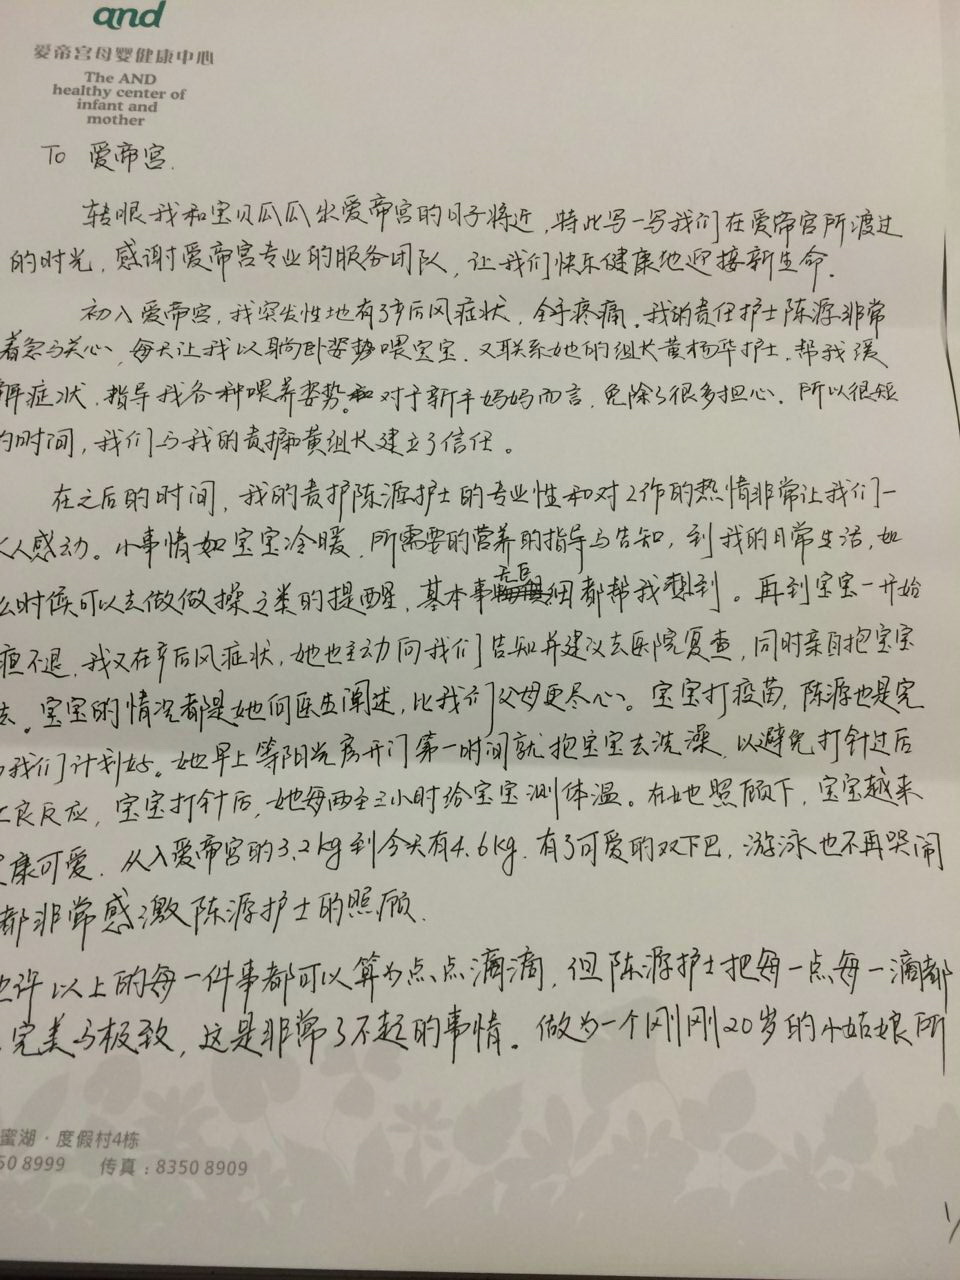 and
爱帝宫母婴健康中心
The AND
healthy center of
infant and
mother
To 爱帝宫.
转眼我和宝贝瓜瓜出爱帝宫的日子将近,特此写一写我们在爱帝宫所渡过
的时光,感谢爱帝宫专业的服务团队,让我们快乐健康地迎接新生命.
初入爱帝宫,我突发性地有了产后风症状,全手疼痛.我的责任护士陈源非常
着急与关心,每天让我以躺卧姿势喂宝宝.又联系她的组长黄杨华护士.帮我缓
解症状.指导我各种喂养姿势.对于新手妈妈而言,免除了很多担心.所以很短
的时间,我们与我的责护和黄组长建立了信任。
在之后的时间,我的责护陈源护士的专业性和对工作的热情非常让我们一
人感动。小事情如宝宝冷暖,所需要的营养的指导与告知,到我的日常生活,如
么时候可以去做做操之类的提醒,基本事无巨细都帮我想到。再到宝宝一开始
疸不退,我又在产后风症状,她也主动向我们告知并建议去医院复查,同时亲自抱宝宝
去.宝宝的情况都是她向医生阐述,比我们父母更尽心。宝宝打疫苗,陈源也是完
我们计划好。她早上等阳光房开门第一时间就抱宝宝去洗澡,以避免打针过后
良反应,宝宝打针后,她每两至三小时给宝宝测体温。在她照顾下,宝宝越来
康可爱.从入爱帝宫的3.2kg到今天有4.6kg.有了可爱的双下巴,游泳也不再哭闹
都非常感激陈源护士的照顾.
也许以上的每一件事都可以算为点点滴滴,但陈源护士把每一点每一滴都
完美与极致,这是非常了不起的事情。做为一个刚刚20岁的小姑娘所
蜜湖·度假村4栋
50 8999 传真:8350 8909
1/